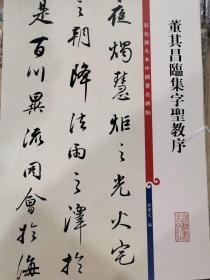 董其昌臨集字聖教序
彩色放大本中國著名碑帖
編
夜燭慧炬之光火宅
之朝降法雨之澤於
是百川異流同會於海